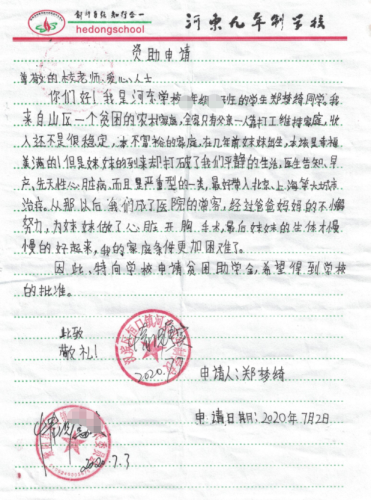 hedongschool
河东九年制学校
资助申请
尊敬的校老师、爱心人士
你们好！我是河东学校 年级 班的学生郑梦绮同学，我
来自山区一个贫困的农村家庭，全家只靠父亲一人靠打工维持家庭，收
入还不是很稳定，本不富裕的家庭，在几年前妹妹出生，本该是幸福
美满的！但是妹妹的到来却打破了我们平静的生活，医生告知，早
产，先天性心脏病，而且是严重型的一类，最好带入北京、上海等大城市
治疗。从那以后，我们成了医院的常客，经过爸爸妈妈的不懈
努力，为妹妹做了心脏开胸手术，最后妹妹的身体才慢
慢的好起来，我的家庭条件更加困难了。
因此、特向学校申请贫困助学金，希望得到学校
的批准。
此致
敬礼！
2020.7.3
申请人：郑梦绮
申请日期：2020年7月2日
2020.7.3